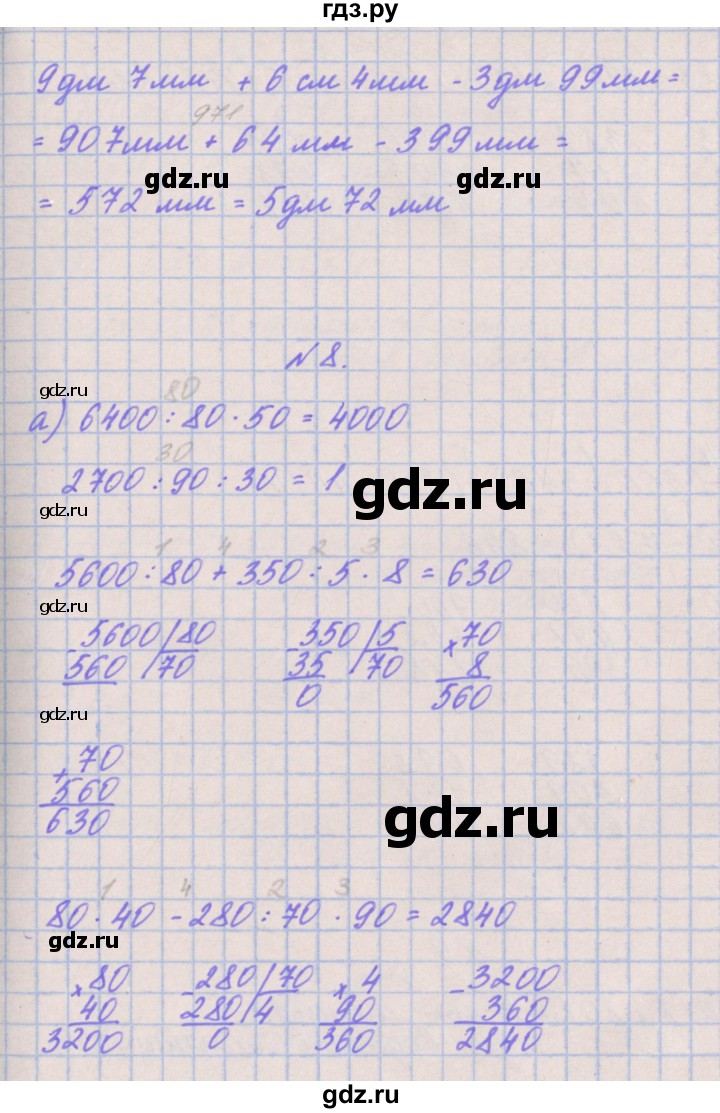 гдз.ру
9дм 7мм + 6 см 4мм - 3дм 99мм =
971
= 907мм + 64 мм - 399мм =
gdz.ru gdz.ru
= 572 мм = 5дм 72 мм
№ 8.
gdz.ru
80
а) 6400 : 80 · 50 = 4000
30
2700 : 90 : 30 = 1
gdz.ru
gdz.ru
1 4 2 3
5600 : 80 + 350 : 5 · 8 = 630
gdz.ru
- 5600 80 - 350 5 × 70
560 70 35 70 8
0 560
gdz.ru
+ 70
560
630
gdz.ru
1 4 2 3
80 · 40 - 280 : 70 · 90 = 2840
gdz.ru
× 80 - 280 70 × 4 - 3200
40 280 4 90 360
3200 0 360 2840
gdz.ru
gdz.ru